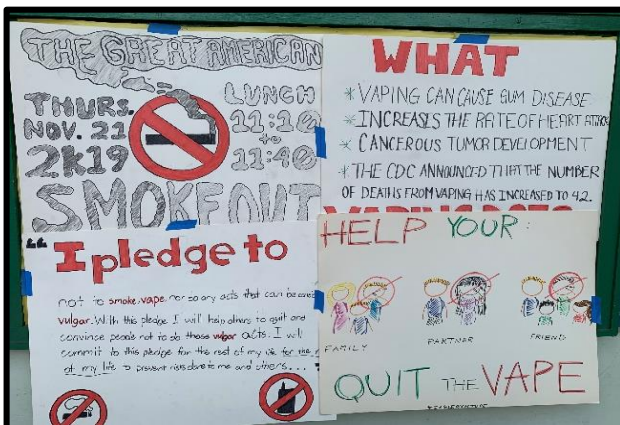 THE GREAT AMERICAN
THURS.
NOV. 21
2K19
LUNCH
11:10
to
11:40
SMOKEOUT
WHAT
* VAPING CAN CAUSE GUM DISEASE
* INCREASES THE RATE OF HEART ATTACK
* CANCEROUS TUMOR DEVELOPMENT
* THE CDC ANNOUNCED THAT THE NUMBER
OF DEATHS FROM VAPING HAS INCREASED TO 42.
VAPING
“I pledge to
not to smoke, vape, nor do any acts that can be
vulgar. With this pledge I will help others to quit and
convince people not to do these vulgar acts. I will
commit to this pledge for the rest of my life for the
of my life to prevent risks done to me and others...
HELP YOUR:
FAMILY
PARTNER
FRIEND
QUIT THE VAPE